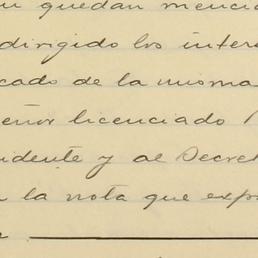 quedan mencio
dirigido los intere
cado de la misma
eñor licenciado
idente y al Secret
la nota que exp